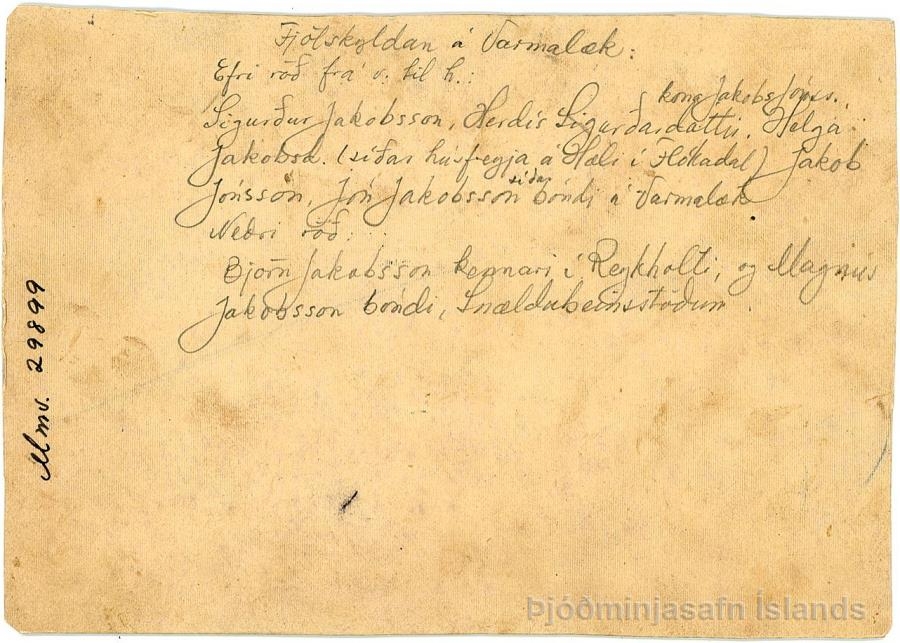 Fjölskyldan á Varmalæk:
Efri röð frá v. til h.:
kona Jakobs Jónss.
Sigurður Jakobsson, Herdís Sigurðardóttir, Helga
Jakobsd. (síðar húsfreyja á Hæli í Flókadal) Jakob
síðar
Jónsson, Jón Jakobsson bóndi á Varmalæk
Neðri röð:
Björn Jakobsson kennari í Reykholti, og Magnús
Jakobsson bóndi, Snældubeinsstöðum.
Mmv. 29899
Þjóðminjasafn Íslands